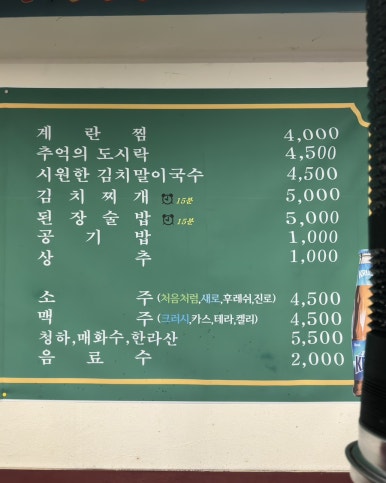 계 란 찜 4,000
추억의 도시락 4,500
시원한 김치말이국수 4,500
김 치 찌 개 15분 5,000
된 장 술 밥 15분 5,000
공 기 밥 1,000
상 추 1,000
소 주 (처음처럼,새로,후레쉬,진로) 4,500
맥 주 (크러시,카스,테라,켈리) 4,500
청하,매화수,한라산 5,500
음 료 수 2,000